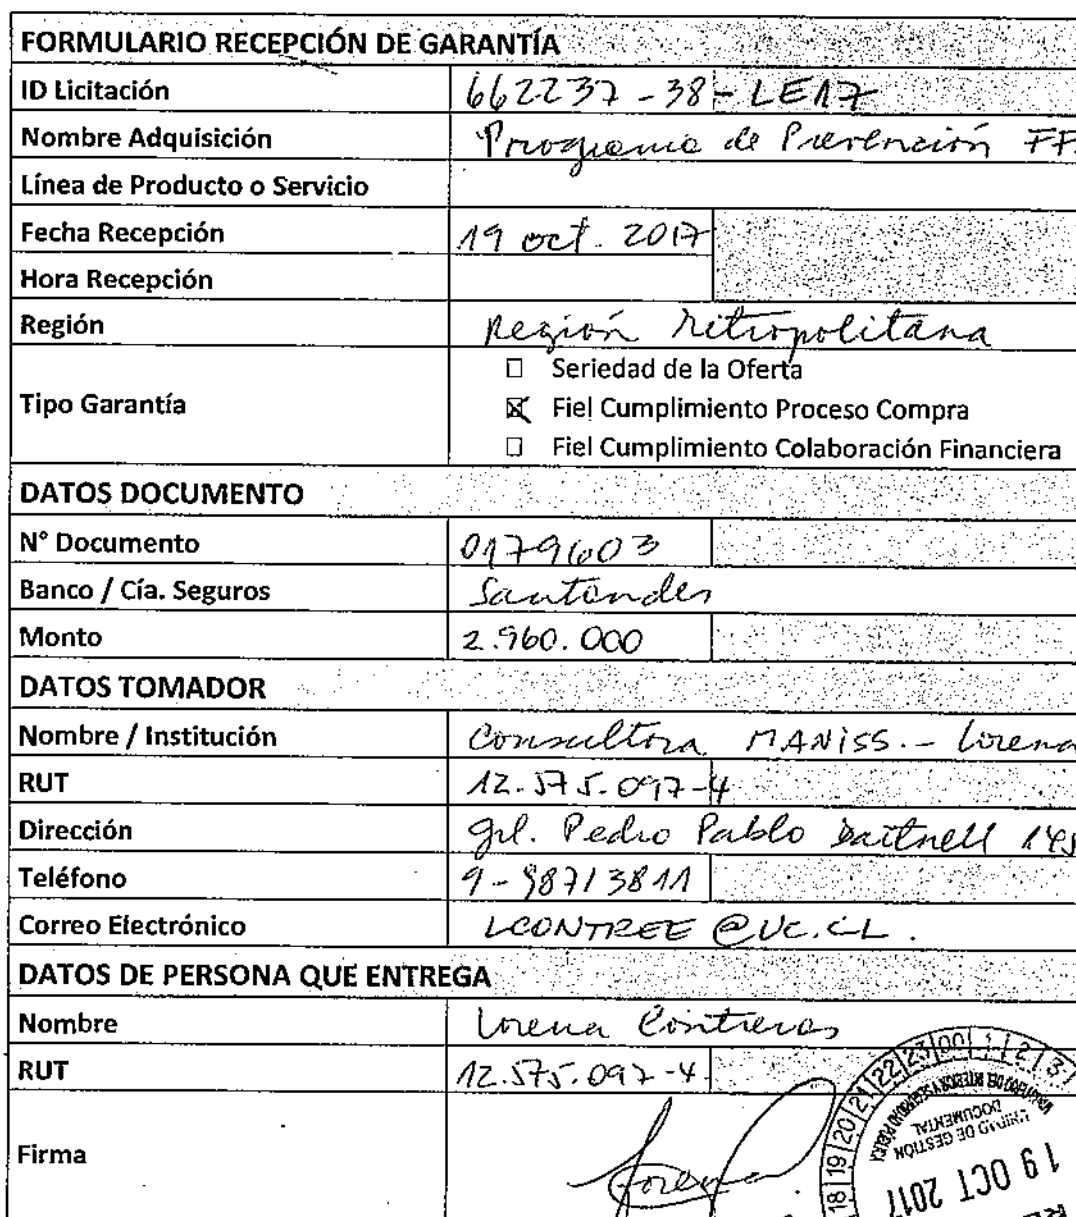 FORMULARIO RECEPCIÓN DE GARANTÍA
ID Licitación 662237-38-LE17
Nombre Adquisición Programa de Prevención FF
Línea de Producto o Servicio
Fecha Recepción 19 oct. 2017
Hora Recepción
Región Región Metropolitana
Tipo Garantía
☐ Seriedad de la Oferta
☒ Fiel Cumplimiento Proceso Compra
☐ Fiel Cumplimiento Colaboración Financiera
DATOS DOCUMENTO
N° Documento 0179603
Banco / Cía. Seguros Santander
Monto 2.960.000
DATOS TOMADOR
Nombre / Institución Consultora MANISS.- Lorena
RUT 12.575.097-4
Dirección Grl. Pedro Pablo 145
Teléfono 9-98713811
Correo Electrónico LCONTREE@UC.CL.
DATOS DE PERSONA QUE ENTREGA
Nombre Lorena Contreras
RUT 12.575.097-4
Firma Lorena
18 19 20 21 22 23 00 1 2 3
UNIDAD DE GESTION
DOCUMENTAL
19 OCT 2017